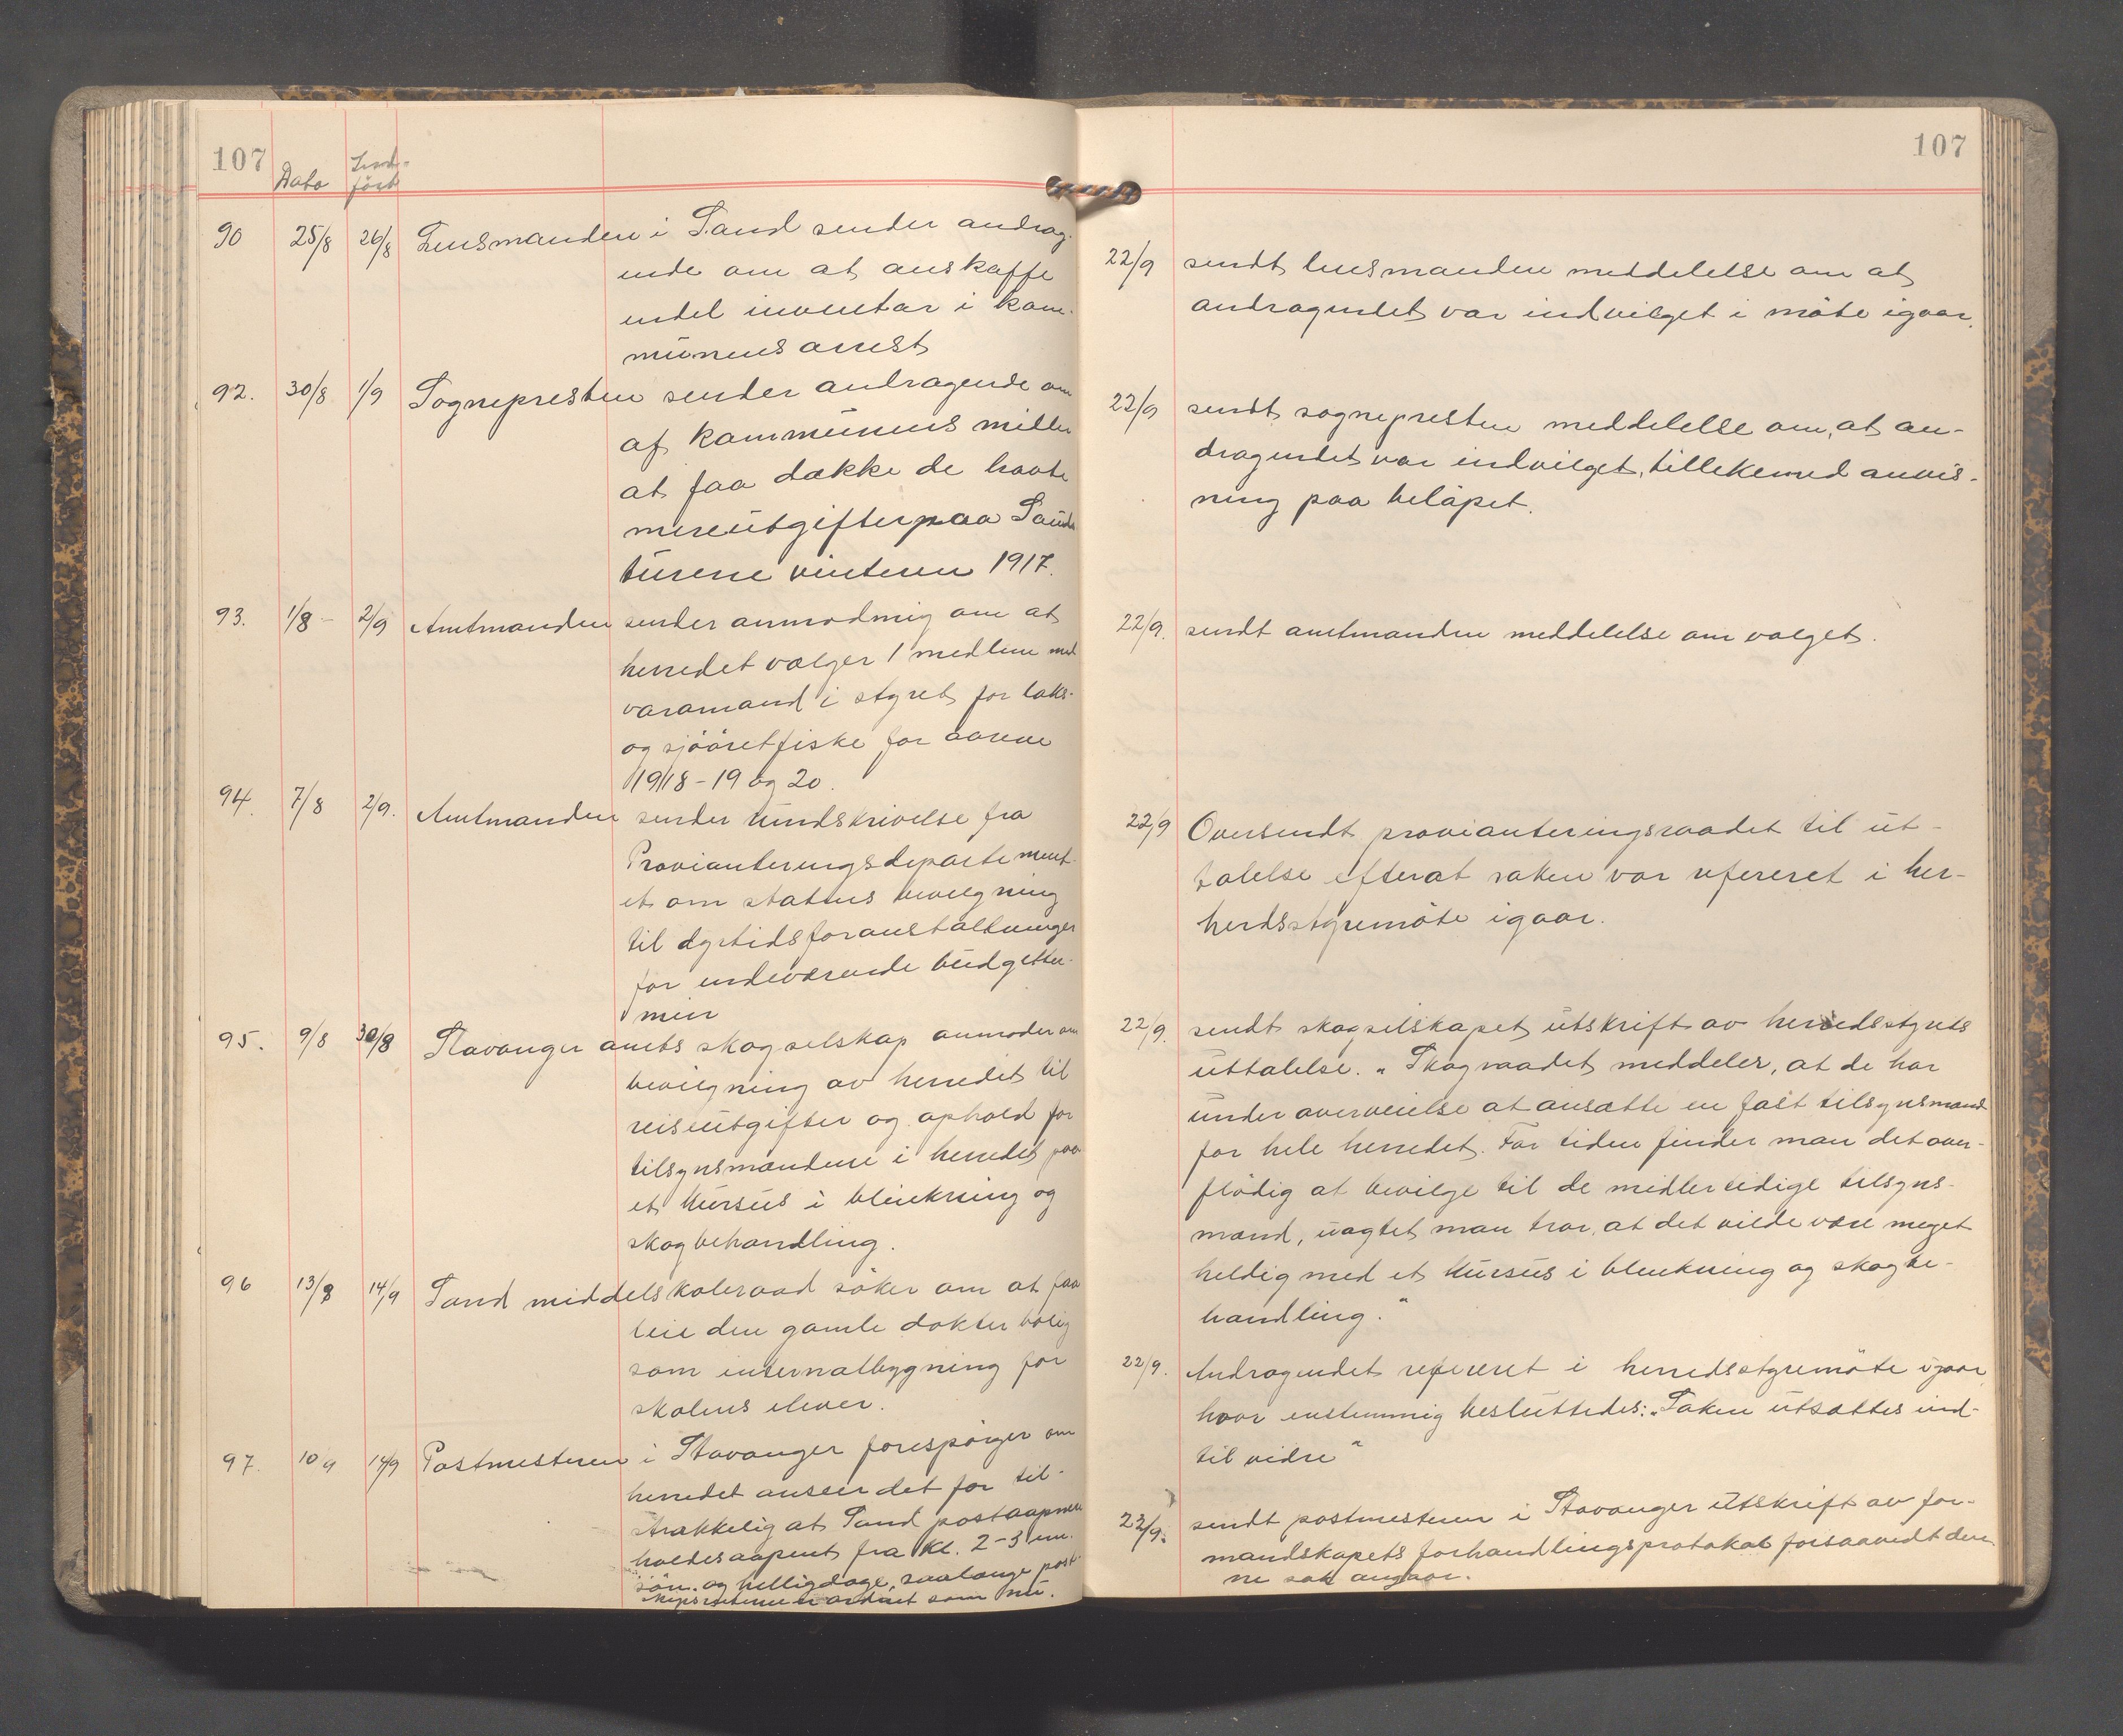 107
Dato
Ind-
ført
90 25/8 26/8 Lensmanden i Sand sender andrag-
ende om at anskaffe
endel inventar i kom-
munens arrest
92. 30/8 1/9 Sognepresten sender andragende om
af kommunens midler
at faa dække de havte
mereutgifter paa Sauda
turene vinteren 1917.
93. 1/8 - 2/9 Amtmanden sender anmodning om at
herredet vælger 1 medlem med
varamand i styret for laks-
og sjöörretfiske for aarene
1918-19 og 20.
94. 7/8 2/9. Amtmanden sender rundskrivelse fra
Provianteringsdepartement-
et om statens bevilgning
til dyrtidsforanstaltninger
for indeværende budgetter-
min
95. 9/8 30/8 Stavanger amts skogselskap anmoder om
bevilgning av herredet til
reiseutgifter og ophold for
tilsynsmændene i herredet paa
et kursus i blinkning og
skogbehandling.
96 13/8 14/9 Sand middelskoleraad söker om at faa
leie den gamle dokterbolig
som internatbygning for
skolens elever.
97. 10/9 14/9 Postmesteren i Stavanger forespörger om
herredet anseer det for til-
strækkelig at Sand postaapneri
holdes aapent fra kl. 2-3 em.
sön- og helligdage, saalænge post-
er ordnet som nu.
107
22/9 sendt lensmanden meddelelse om at
andragendet var indvilget i möte igaar.
22/9 sendt sognepresten meddelelse om, at an-
dragendet var indvilget, tillikemed anvis-
ning paa belöpet.
22/9. sendt amtmanden meddelelse om valget.
22/9 Oversendt provianteringsraadet til ut-
talelse efterat saken var referert i her-
herdsstyremöte igaar.
22/9. sendt skogselskapet utskrift av herredsstyrets
uttalelse. "Skograadet meddeler, at de har
under overveielse at ansætte en fast tilsynsmand
for hele herredet. For tiden finder man det over-
flödig at bevilge til de midlertidige tilsyns-
mænd, uagtet man tror, at det vilde være meget
heldig med et kursus i blinkning og skogbe-
handling."
22/9. Andragendet refereret i herredsstyremöte igaar
hvor enstemmig besluttedes: "Saken utsættes ind-
til videre"
22/9. sendt postmesteren i Stavanger utskrift av for-
mandskapets forhandlingsprotokol forsaavidt den-
ne sak angaar.